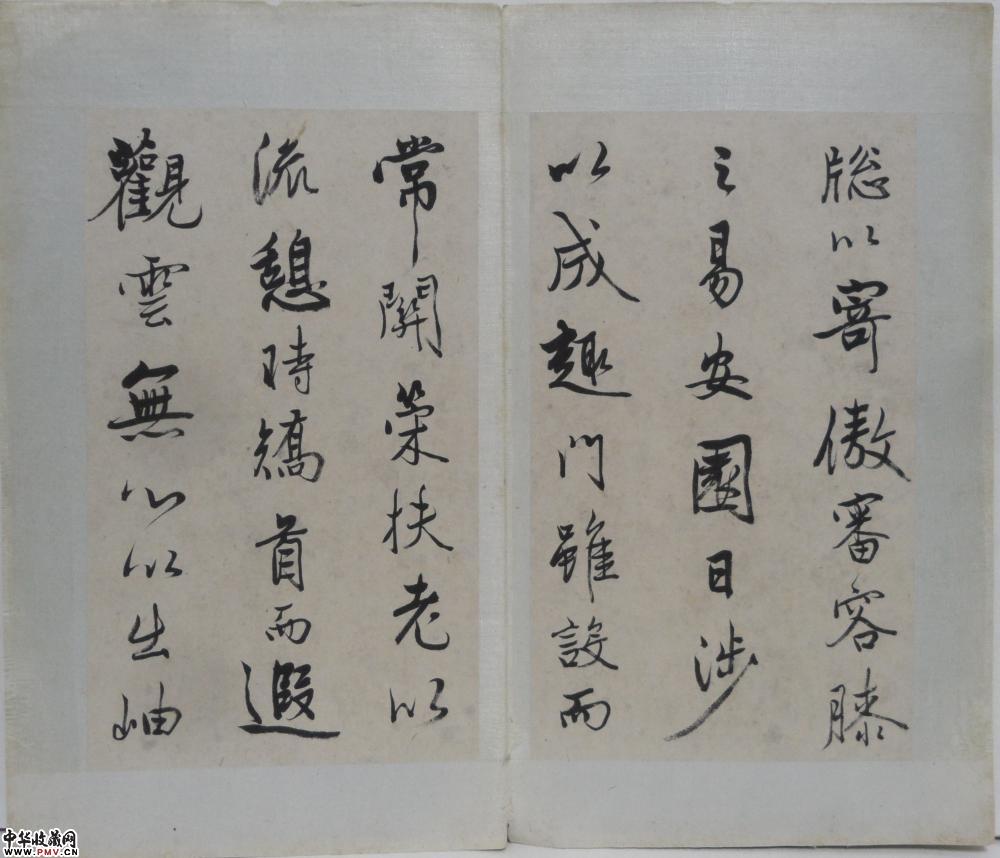 牎以寄傲審容膝
之易安園日涉
以成趣門雖設而
常關策扶老以
流憩時矯首而遐
觀雲無心以出岫
中华收藏网
www.PMV.CN